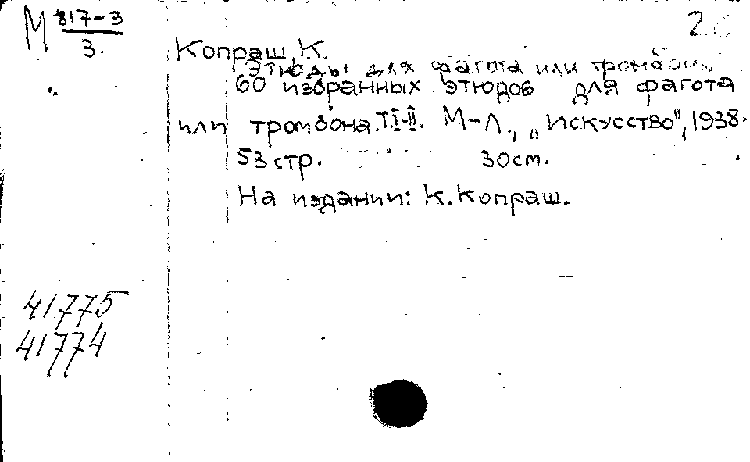 М 817-3
3.
Копраш, К.
Этюды для фагота или тромбона
60 избранных этюдов для фагота
или тромбона. Т I-II. М-Л., „Искусство", 1938.
53 стр. 30 см.
На издании: К. Копраш.
41775
41774